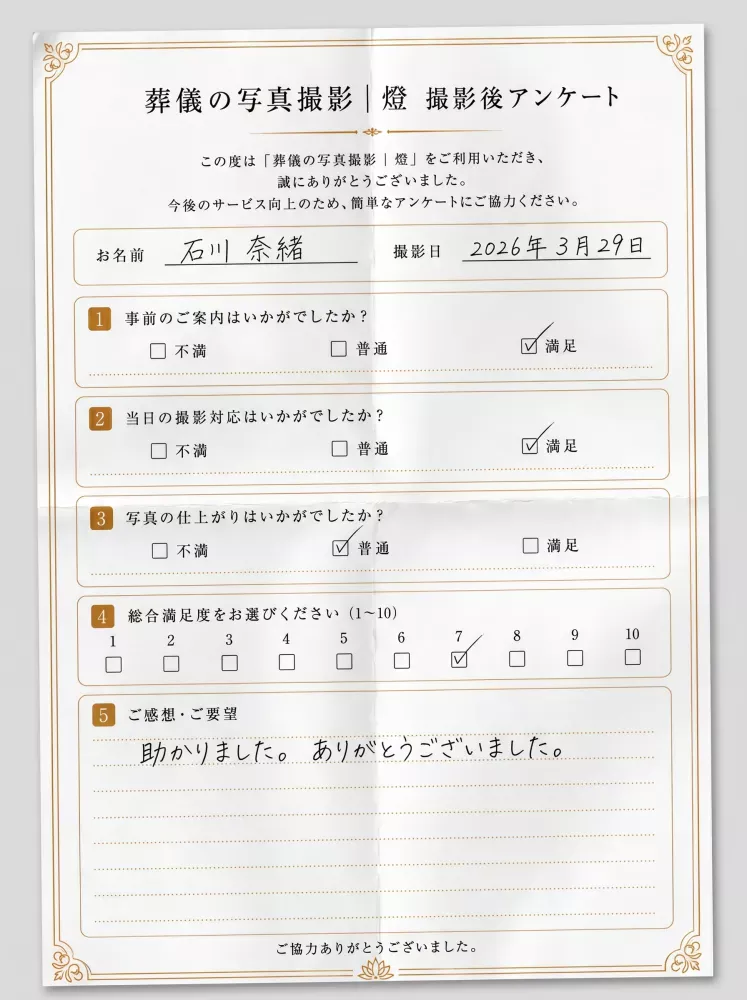 葬儀の写真撮影｜燈 撮影後アンケート
この度は「葬儀の写真撮影｜燈」をご利用いただき、
誠にありがとうございました。
今後のサービス向上のため、簡単なアンケートにご協力ください。
お名前 石川 奈緒 撮影日 2026年3月29日
1 事前のご案内はいかがでしたか？
□ 不満 □ 普通 ☑ 満足
2 当日の撮影対応はいかがでしたか？
□ 不満 □ 普通 ☑ 満足
3 写真の仕上がりはいかがでしたか？
□ 不満 ☑ 普通 □ 満足
4 総合満足度をお選びください（1〜10）
1 2 3 4 5 6 7 8 9 10
□ □ □ □ □ □ ☑ □ □ □
5 ご感想・ご要望
助かりました。 ありがとうございました。
ご協力ありがとうございました。